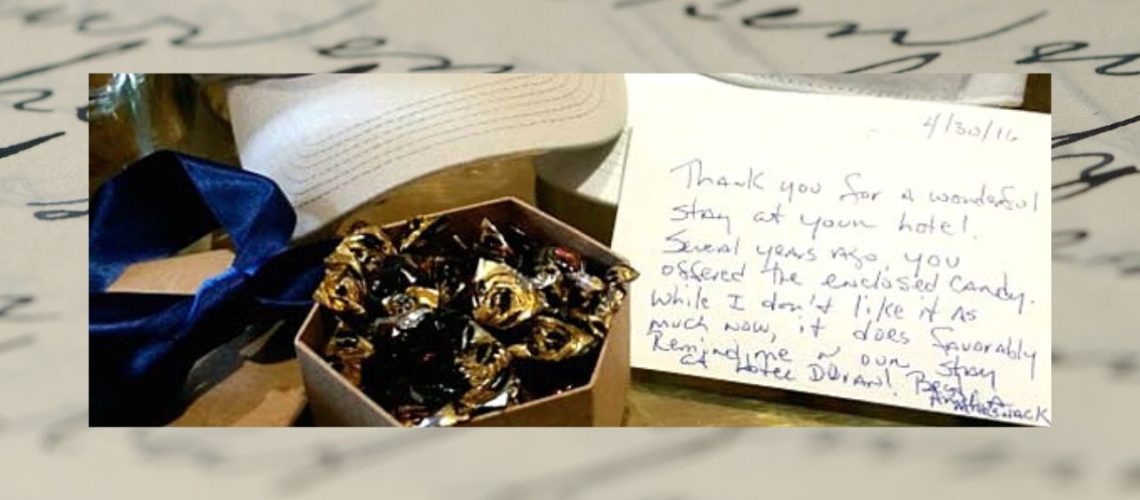 4/30/16
Thank you for a wonderful
stay at your hotel.
Several years ago, you
offered the enclosed candy.
While I don't like it as
much now, it does favorably
Remind me our stay
at Hotel Duvant. Best,